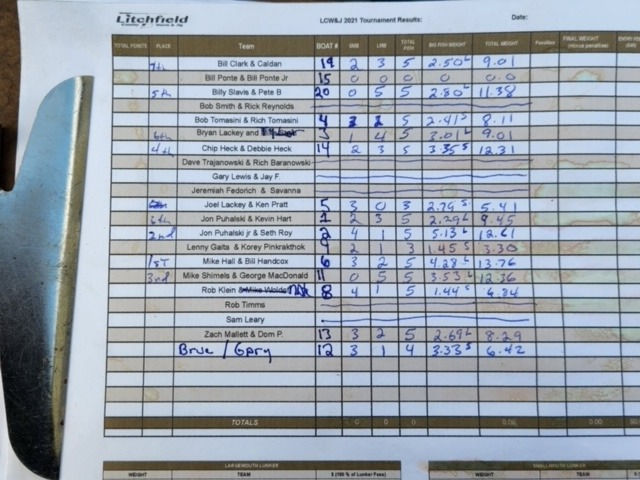 Litchfield LCW&J 2021 Tournament Results: Date:
TOTAL POINTS PLACE Team BOAT # SMB LMB TOTAL FISH BIG FISH WEIGHT TOTAL WEIGHT Penalties FINAL WEIGHT (minus penalties)
7th Bill Clark & Caldan 19 2 3 5 2.50 L 9.01
Bill Ponte & Bill Ponte Jr 15 0 0 0 0 0.0
5th Billy Slavis & Pete B 20 0 5 5 2.80 L 11.38
Bob Smith & Rick Reynolds
Bob Tomasini & Rich Tomasini 4 3 2 5 2.41 S 8.11
6th Bryan Lackey and 3 1 4 5 3.01 L 9.01
4th Chip Heck & Debbie Heck 14 2 3 5 3.35 S 12.31
Dave Trajanowski & Rich Baranowski
Gary Lewis & Jay F.
Jeremiah Fedorich & Savanna
Joel Lackey & Ken Pratt 5 3 0 3 2.25 S 5.41
Jon Puhalski & Kevin Hart 1 2 3 5 2.29 L 9.45
2nd Jon Puhalski jr & Seth Roy 2 4 1 5 5.13 L 12.61
Lenny Gaits & Korey Pinkrakthok 9 2 1 3 1.45 S 3.30
1st Mike Hall & Bill Handcox 6 3 2 5 4.28 L 13.76
3rd Mike Shimels & George MacDonald 11 0 5 5 3.53 L 12.36
Rob Klein & Mike Wolde 8 4 1 5 1.44 S 6.84
Rob Timms
Sam Leary
Zach Mallett & Dom P. 13 3 2 5 2.69 L 8.29
Brue / Gary 12 3 1 4 3.33 S 6.42
TOTALS 0 0 0 0.00 0.00
LARGEMOUTH LUNKER SMALLMOUTH LUNKER
WEIGHT TEAM $ (100 % of Lunker Fees) WEIGHT TEAM